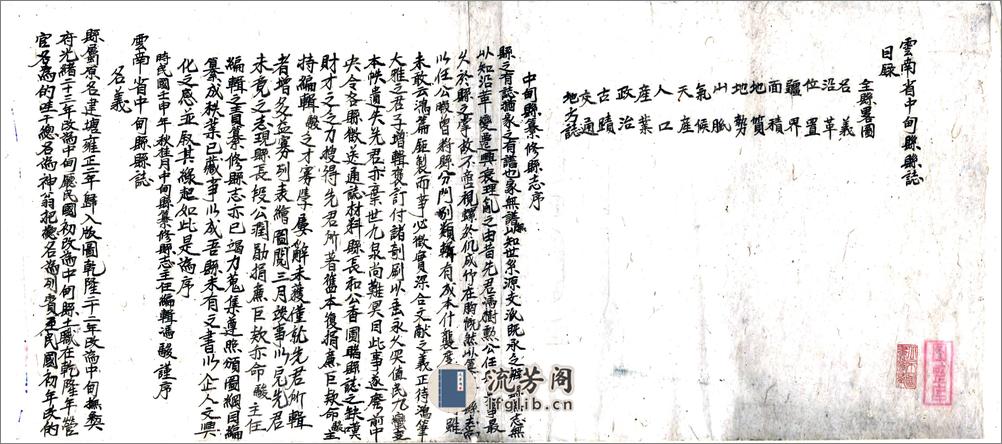 雲南省中甸縣縣誌
目錄
全縣畧圖
名義
沿革
位置
疆界
面積
地質
地勢
山脈
氣候
天產
人口
產業
政治
古蹟
交通
地方誌
中甸縣纂修縣志序
縣之有誌猶家之有譜也家無譜無以知世系源文派既永之
以知沿革變遷興衰理亂之由昔先君馮樹勲公任
久於縣之掌故不啻視螺於仉成竹在胸慨然以
以任公暇曾將縣分門別類輯有成本什襲
未敢云鴻篇鉅製而事必徵實深合文献之義正待鴻筆
大雅之君子增輯裒訂付諸剞劂以垂永久突值民九變
本帙遺失先君亦棄世九泉尚難冥目此事遂廢前中
央令各縣徵送通誌材料縣長和公香圃臨縣誌之缺嘆
財才之乏力搜得先君所著舊本復捐廉巨欵命
持編輯駿之才寡學屡辭未獲僅就先君所輯
者增多益寡列表繪圖閲三月竣事以完先君
未竟之志現縣長段公潤勛捐廉巨欵亦命駿主任
編輯之責纂修縣志亦已竭力蒐集遵照頒圖綱目編
纂成秩業已蕆事以成吾縣未有之書以企人文興
化之感並叙其緣起如此是為序
時民國壬申年秋桂月中甸縣纂修縣志主任編輯馮駿謹序
雲南省中甸縣縣誌
名義
縣屬原名建塘雍正二年歸入版圖乾隆二十二年改為中甸撫夷
府光緒二十三年改為中甸廳民國初改為中甸縣土職在乾隆年營
官名為的哇千總名為神翁把總名為列賓至民國初年改的
流芳阁